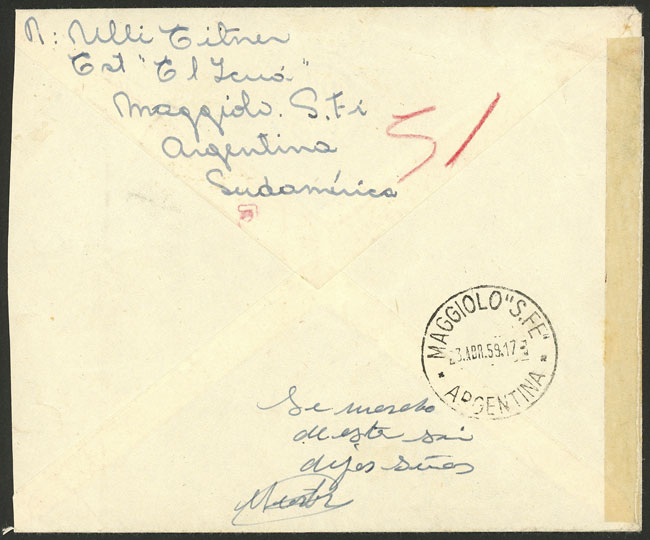 R: Ulli Eitner
Est "El Icuá"
Maggiolo. S. Fé
Argentina
Sudamérica
51
MAGGIOLO "S.FE"
23.ABR.59.17
ARGENTINA
Se marcho
de este sin
dejar señas